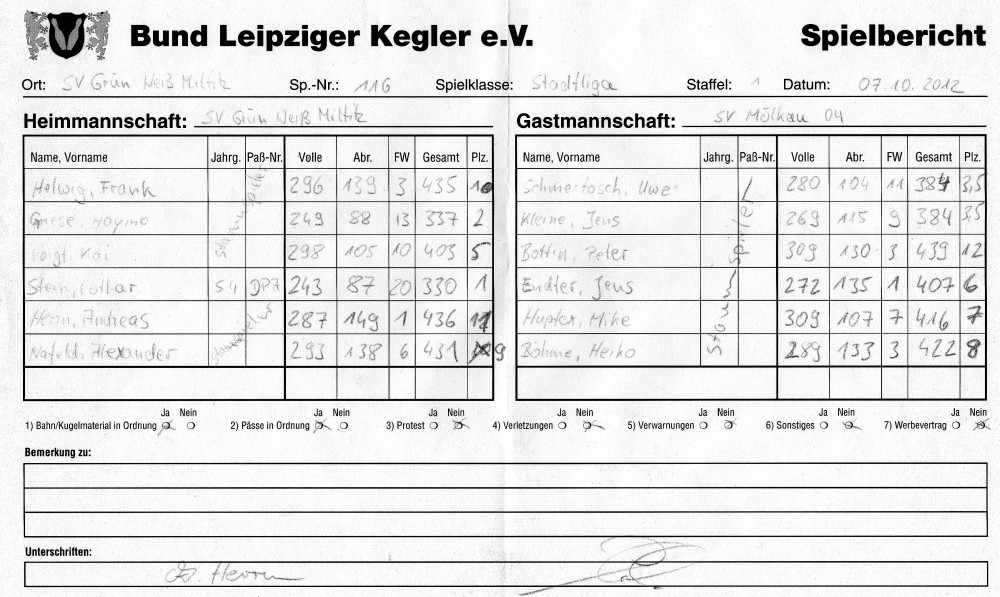 Bund Leipziger Kegler e.V. Spielbericht
Ort: SV Grün Weiß Miltitz Sp.-Nr.: 116 Spielklasse: Stadtliga Staffel: 1 Datum: 07.10.2012
Heimmannschaft: SV Grün Weiß Miltitz Gastmannschaft: SV Mölkau 04
Name, Vorname Jahrg. Paß-Nr. Volle Abr. FW Gesamt Plz. Name, Vorname Jahrg. Paß-Nr. Volle Abr. FW Gesamt Plz.
Helwig, Frank Stammspieler 296 139 3 435 10 Schmertosch, Uwe Stammspieler 280 104 11 384 3,5
Griese, Haymo 249 88 13 337 2 Kleine, Jens 269 115 9 384 3,5
Voigt, Kai 298 105 10 403 5 Bottin, Peter 309 130 3 439 12
Stein, Lothar 54 DP7 243 87 20 330 1 Endler, Jens 272 135 1 407 6
Herrn, Andreas Stammspieler 287 149 1 436 11 Hupfer, Mike 309 107 7 416 7
Nafeld, Alexander 293 138 6 431 9 Böhme, Heiko 289 133 3 422 8
Ja Nein Ja Nein Ja Nein Ja Nein Ja Nein Ja Nein Ja Nein
1) Bahn/Kugelmaterial in Ordnung 2) Pässe in Ordnung 3) Protest 4) Verletzungen 5) Verwarnungen 6) Sonstiges 7) Werbevertrag
Bemerkung zu:
Unterschriften:
A. Herrn